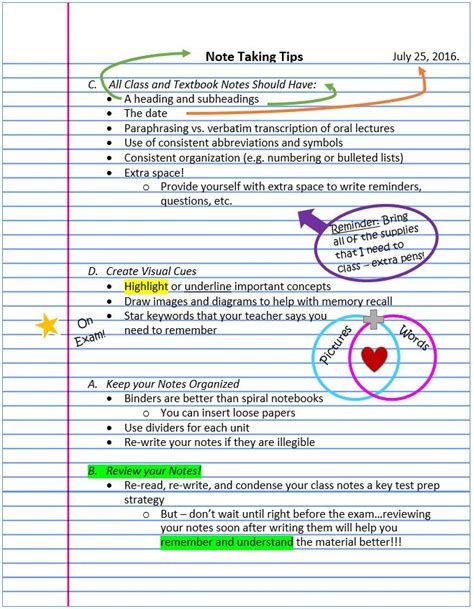 Note Taking Tips
July 25, 2016.
C. All Class and Textbook Notes Should Have:
• A heading and subheadings
• The date
• Paraphrasing vs. verbatim transcription of oral lectures
• Use of consistent abbreviations and symbols
• Consistent organization (e.g. numbering or bulleted lists)
• Extra space!
o Provide yourself with extra space to write reminders,
questions, etc.
Reminder: Bring
all of the supplies
that I need to
class – extra pens!
D. Create Visual Cues
• Highlight or underline important concepts
• Draw images and diagrams to help with memory recall
• Star keywords that your teacher says you
need to remember
On
Exam!
Pictures
Words
A. Keep your Notes Organized
• Binders are better than spiral notebooks
o You can insert loose papers
• Use dividers for each unit
• Re-write your notes if they are illegible
B. Review your Notes!
• Re-read, re-write, and condense your class notes a key test prep
strategy
o But – don't wait until right before the exam…reviewing
your notes soon after writing them will help you
remember and understand the material better!!!